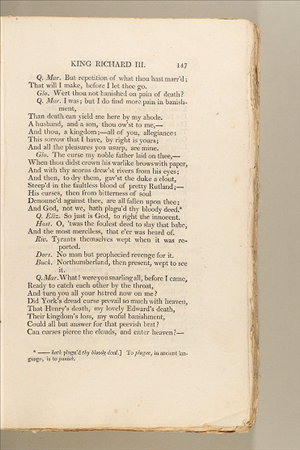 KING RICHARD III. 147
Q. Mar. But repetition of what thou hast marr'd;
That will I make, before I let thee go.
Glo. Wert thou not banished on pain of death?
Q. Mar. I was; but I do find more pain in banish-
ment,
Than death can yield me here by my abode.
A husband, and a son, thou ow'st to me,—
And thou, a kingdom;—all of you, allegiance:
This sorrow that I have, by right is yours;
And all the pleasures you usurp, are mine.
Glo. The curse my noble father laid on thee,—
When thou didst crown his warlike brows with paper,
And with thy scorns drew'st rivers from his eyes;
And then, to dry them, gav'st the duke a clout,
Steep'd in the faultless blood of pretty Rutland;—
His curses, then from bitterness of soul
Denounc'd against thee, are all fallen upon thee;
And God, not we, hath plagu'd thy bloody deed.*
Q. Eliz. So just is God, to right the innocent.
Hast. O, 'twas the foulest deed to slay that babe,
And the most merciless, that e'er was heard of.
Riv. Tyrants themselves wept when it was re-
ported.
Dors. No man but prophecied revenge for it.
Buck. Northumberland, then present, wept to see
it.
Q. Mar. What! were you snarling all, before I came,
Ready to catch each other by the throat,
And turn you all your hatred now on me?
Did York's dread curse prevail so much with heaven,
That Henry's death, my lovely Edward's death,
Their kingdom's loss, my woful banishment,
Could all but answer for that peevish brat?
Can curses pierce the clouds, and enter heaven?—
* —— hath plagu'd thy bloody deed.] To plague, in ancient lan-
guage, is to punish.